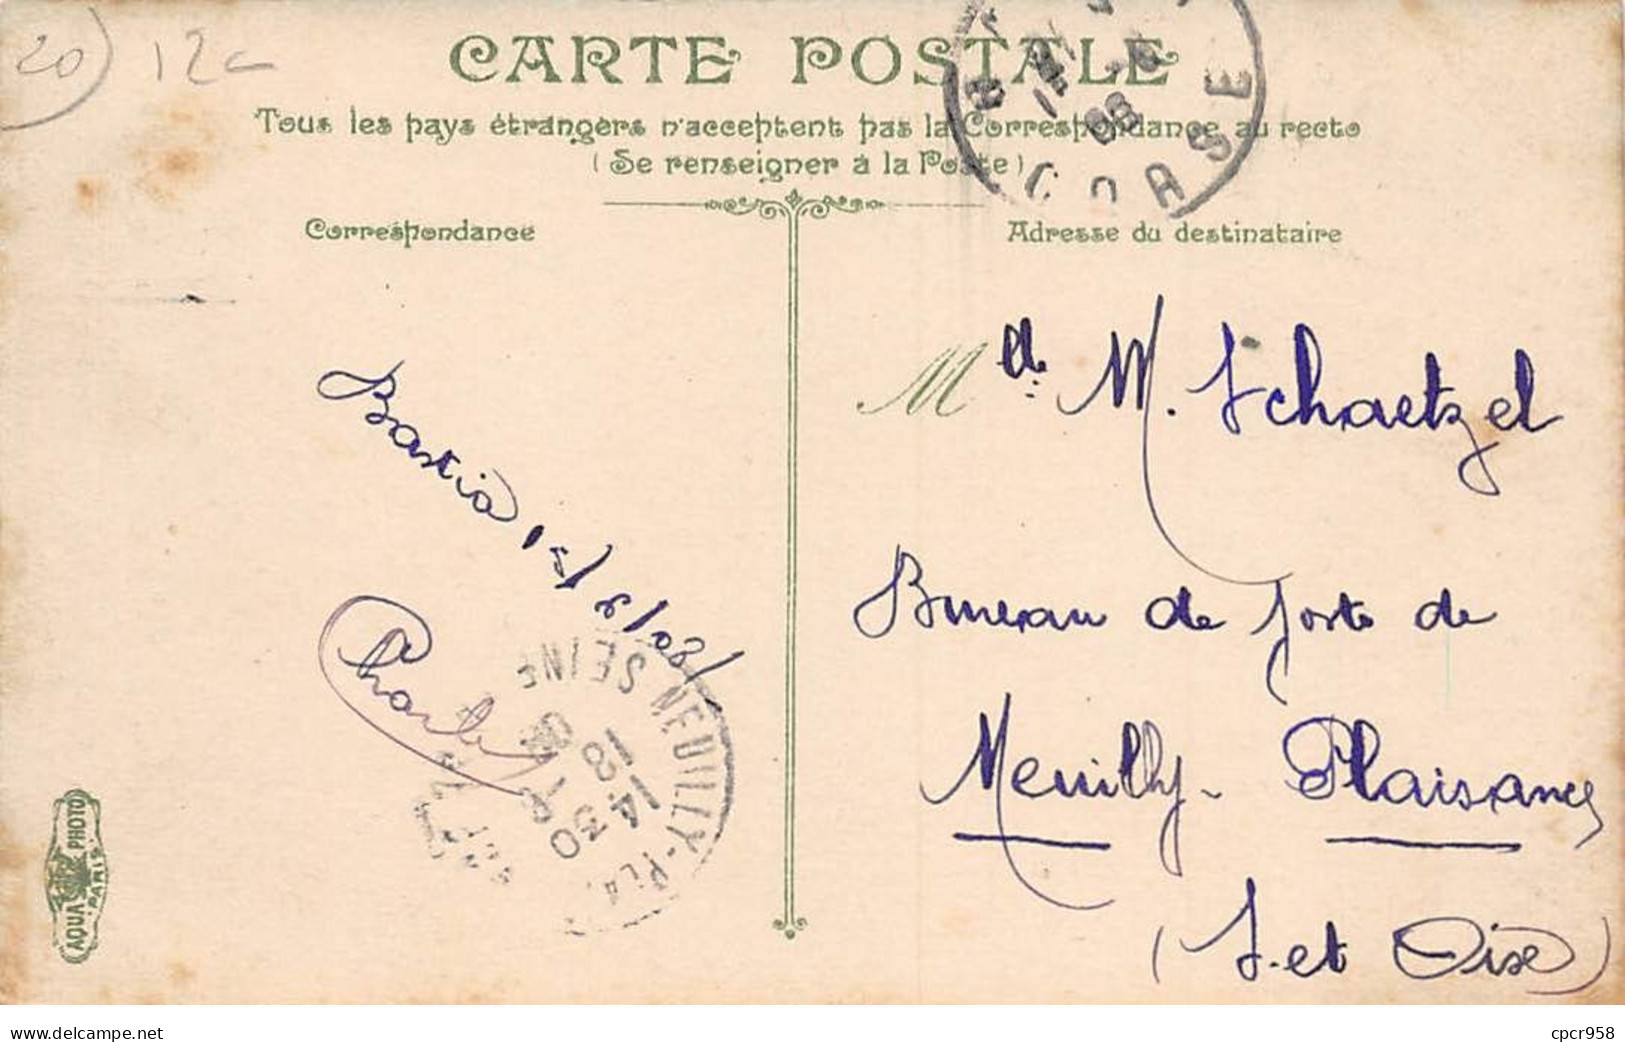 20) 12c
CARTE POSTALE
Tous les pays étrangers n'acceptent pas la Correspondance au recto
(Se renseigner à la Poste)
CORSE
Correspondance
Adresse du destinataire
Mlle. M. Schaetzel
Bastia,
Bureau de Poste de
Charles
Neuilly-Plaisance
(S. et Oise)
NEUILLY-PLA
SEINE
18
1430
AQUA PHOTO
PARIS
www.delcampe.net
cpcr958